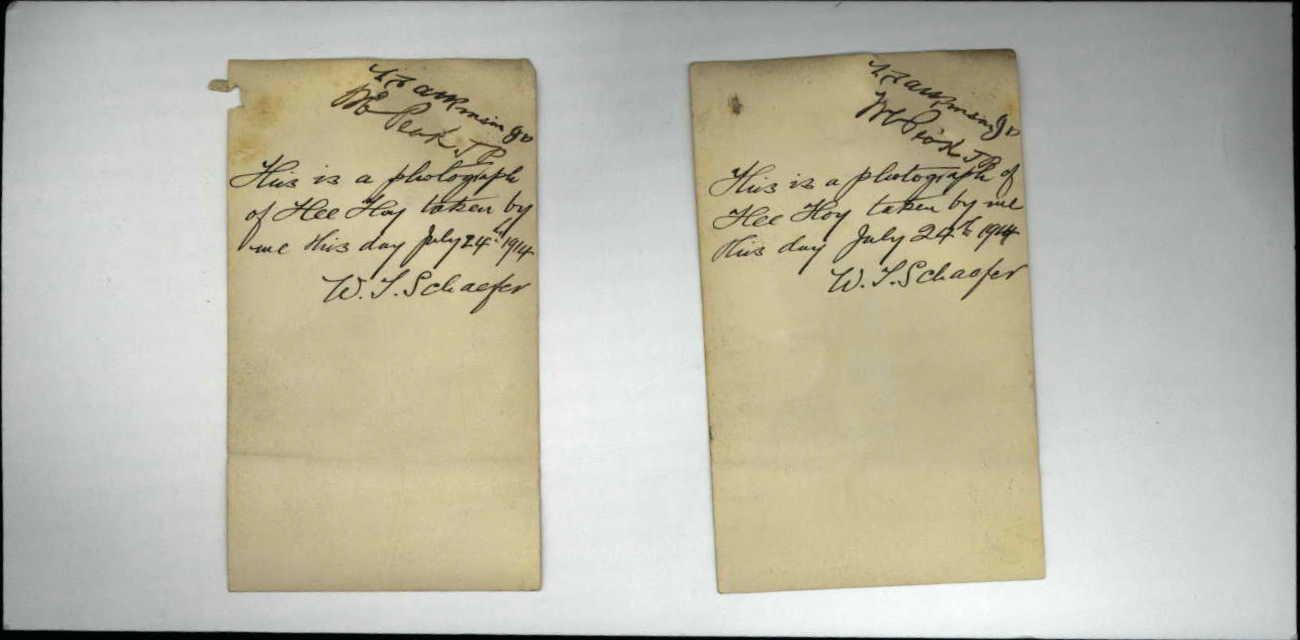 Peak J.P.
This is a photograph
of Hee Hoy taken by
me this day July 24th 1914
W. J. Schaefer
Peak J.P.
This is a photograph of
Hee Hoy taken by me
this day July 24th 1914
W. J. Schaefer